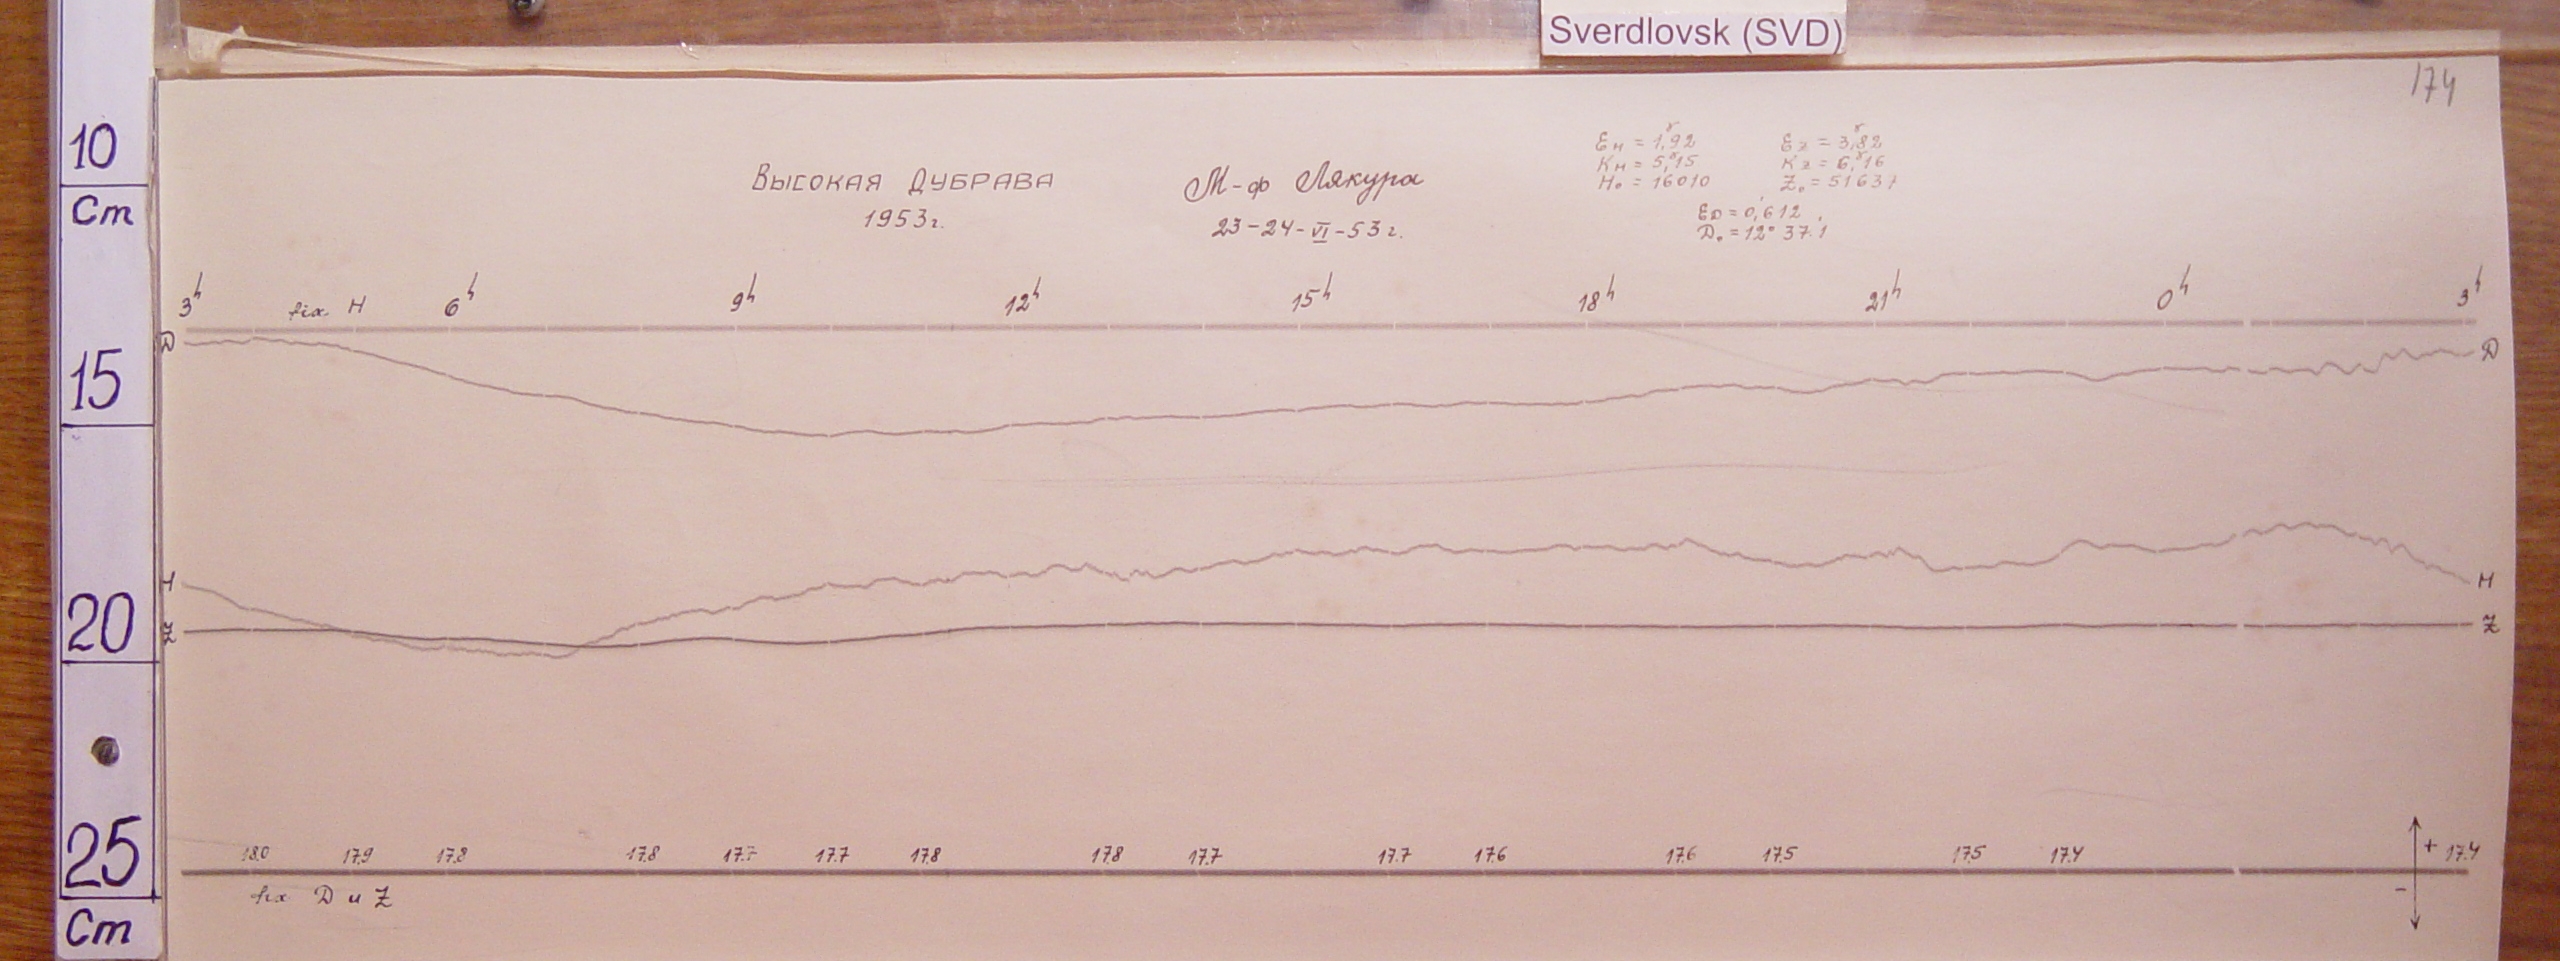 Sverdlovsk (SVD)
174
10
Cm
15
20
25
Cm
Высокая Дубрава
1953г.
М-ф Лякура
23-24-VI-53г.
Eн = 1,92γ Ez = 3,82γ
Kн = 5,15γ Kz = 6,16γ
H₀ = 16010 Z₀ = 51637
ED = 0,'612
D₀ = 12° 37.'1
3h fix H 6h 9h 12h 15h 18h 21h 0h 3h
D D
H H
Z Z
18.0 17.9 17.8 17.8 17.7 17.7 17.8 17.8 17.7 17.7 17.6 17.6 17.5 17.5 17.4 + 17.4
fix D и Z -